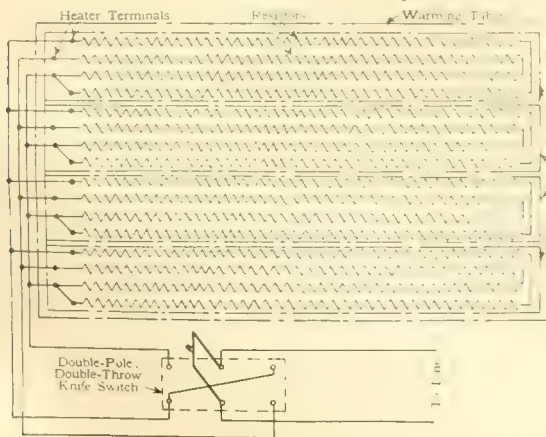 Heater Terminals
Resistors
Warming
Double-Pole,
Double-Throw
Knife Switch